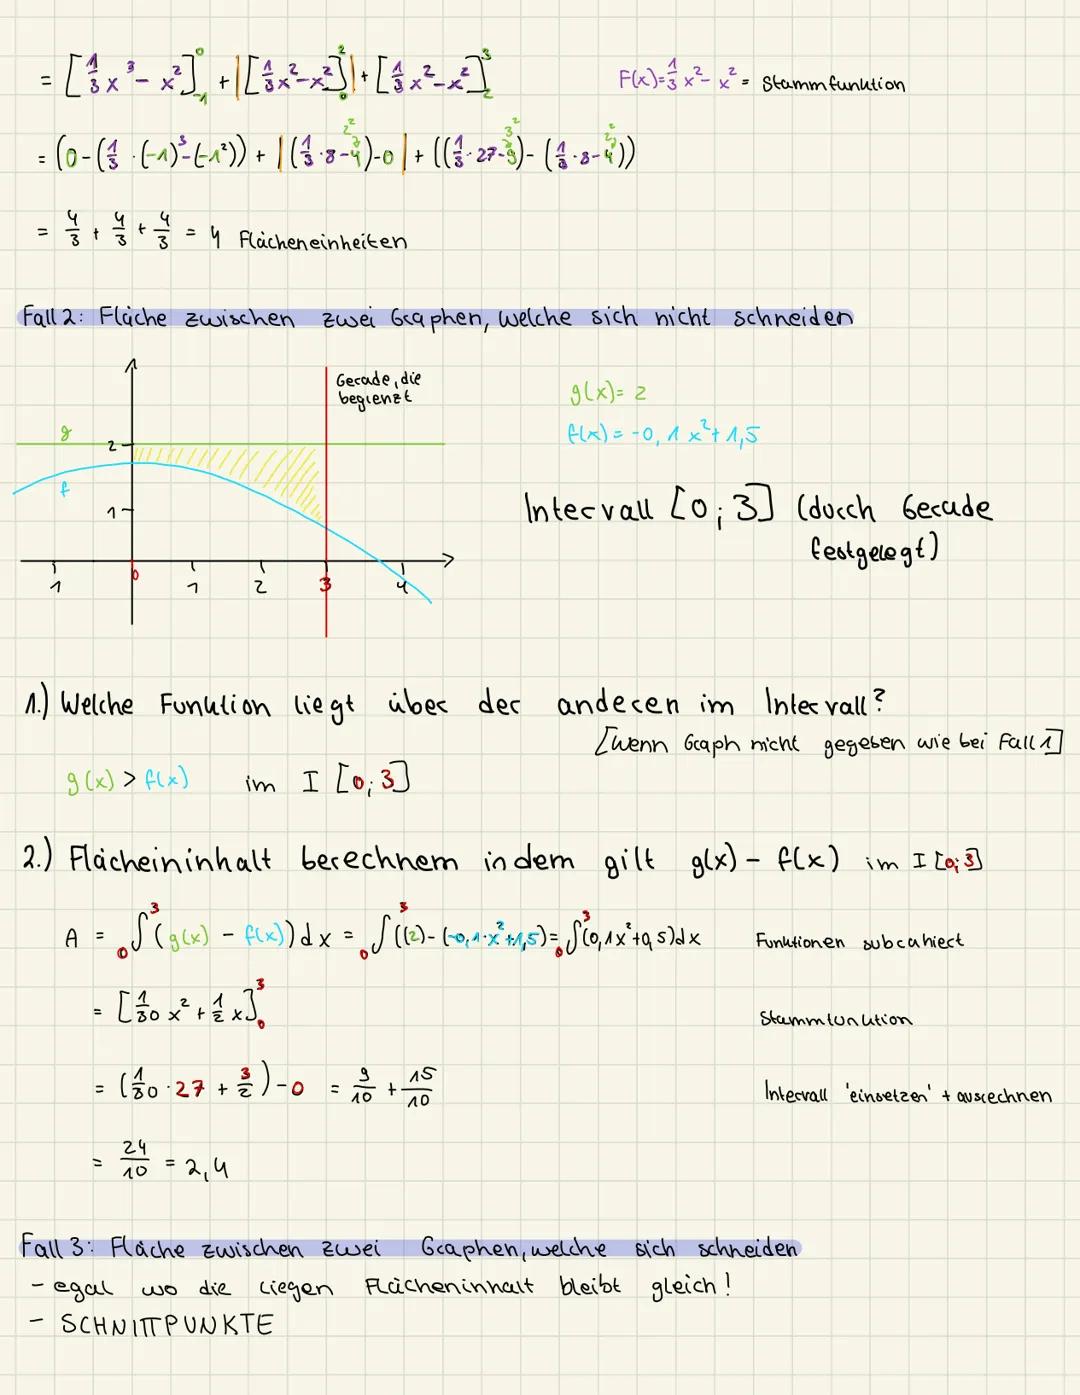 = [1/3 x³ - x²]₋₁⁰ + |[1/3 x² - x²]₀²| + [1/3 x² - x²]₂³
F(x) = 1/3 x² - x² = Stammfunktion
= (0 - (1/3 · (-1)³ - (-1²)) + |(1/3 · 8 - 4) - 0| + ((1/3 · 27 - 9) - (1/3 · 8 - 4))
= 4/3 + 4/3 + 4/3 = 4 Flächeneinheiten
Fall 2: Fläche zwischen zwei Graphen, welche sich nicht schneiden
Gerade, die
begrenzt
g
f
2
1
1
0
1
2
3
4
g(x) = 2
f(x) = -0,1x² + 1,5
Intervall [0; 3] (durch Gerade
festgelegt)
1.) Welche Funktion liegt über der anderen im Intervall?
[Wenn Graph nicht gegeben wie bei Fall 1]
g(x) > f(x) im I [0; 3]
2.) Flächeininhalt berechnem indem gilt g(x) - f(x) im I [0; 3]
A = ₀∫³ (g(x) - f(x)) dx = ₀∫³ ((2) - (-0,1·x² + 1,5) = ₀∫³ (0,1x² + 0,5) dx Funktionen subrahiert
= [1/30 x² + 1/2 x]₀³ Stammfunktion
= (1/30 · 27 + 3/2) - 0 = 9/10 + 15/10 Intervall 'einsetzen' + ausrechnen
= 24/10 = 2,4
Fall 3: Fläche zwischen zwei Graphen, welche sich schneiden
- egal wo die liegen Flächeninhalt bleibt gleich!
- SCHNITTPUNKTE